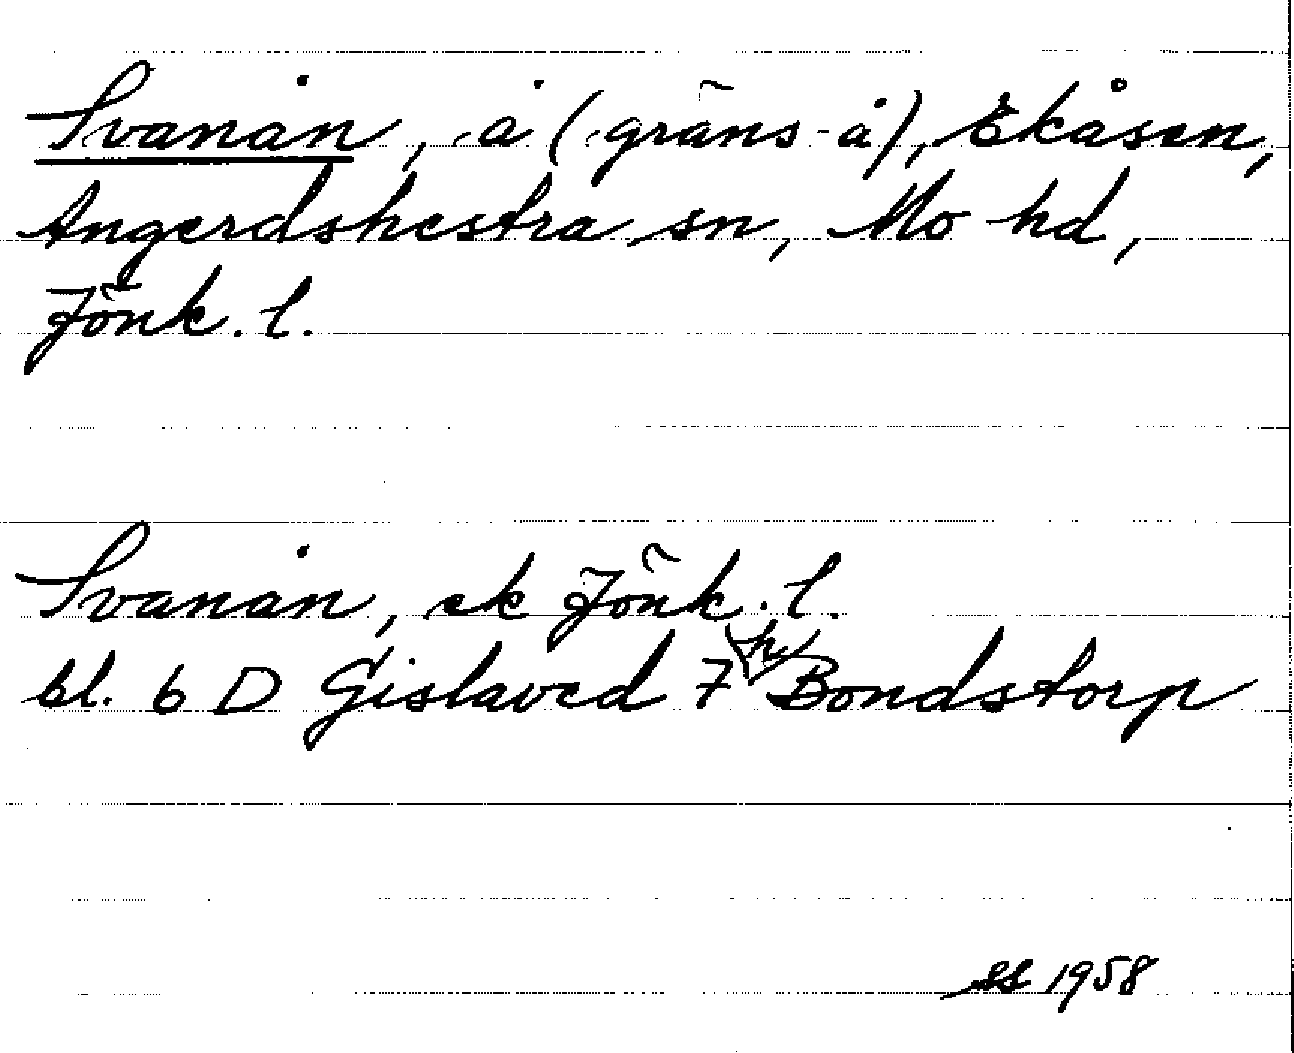 Svanån, å (gräns-å), Ekåsen,
Angerdshestra sn, Mo hd,
Jönk. l.
Svanån, ek Jönk. l.
bl. 6 D Gislaved 7 h Bondstorp
SS 1958